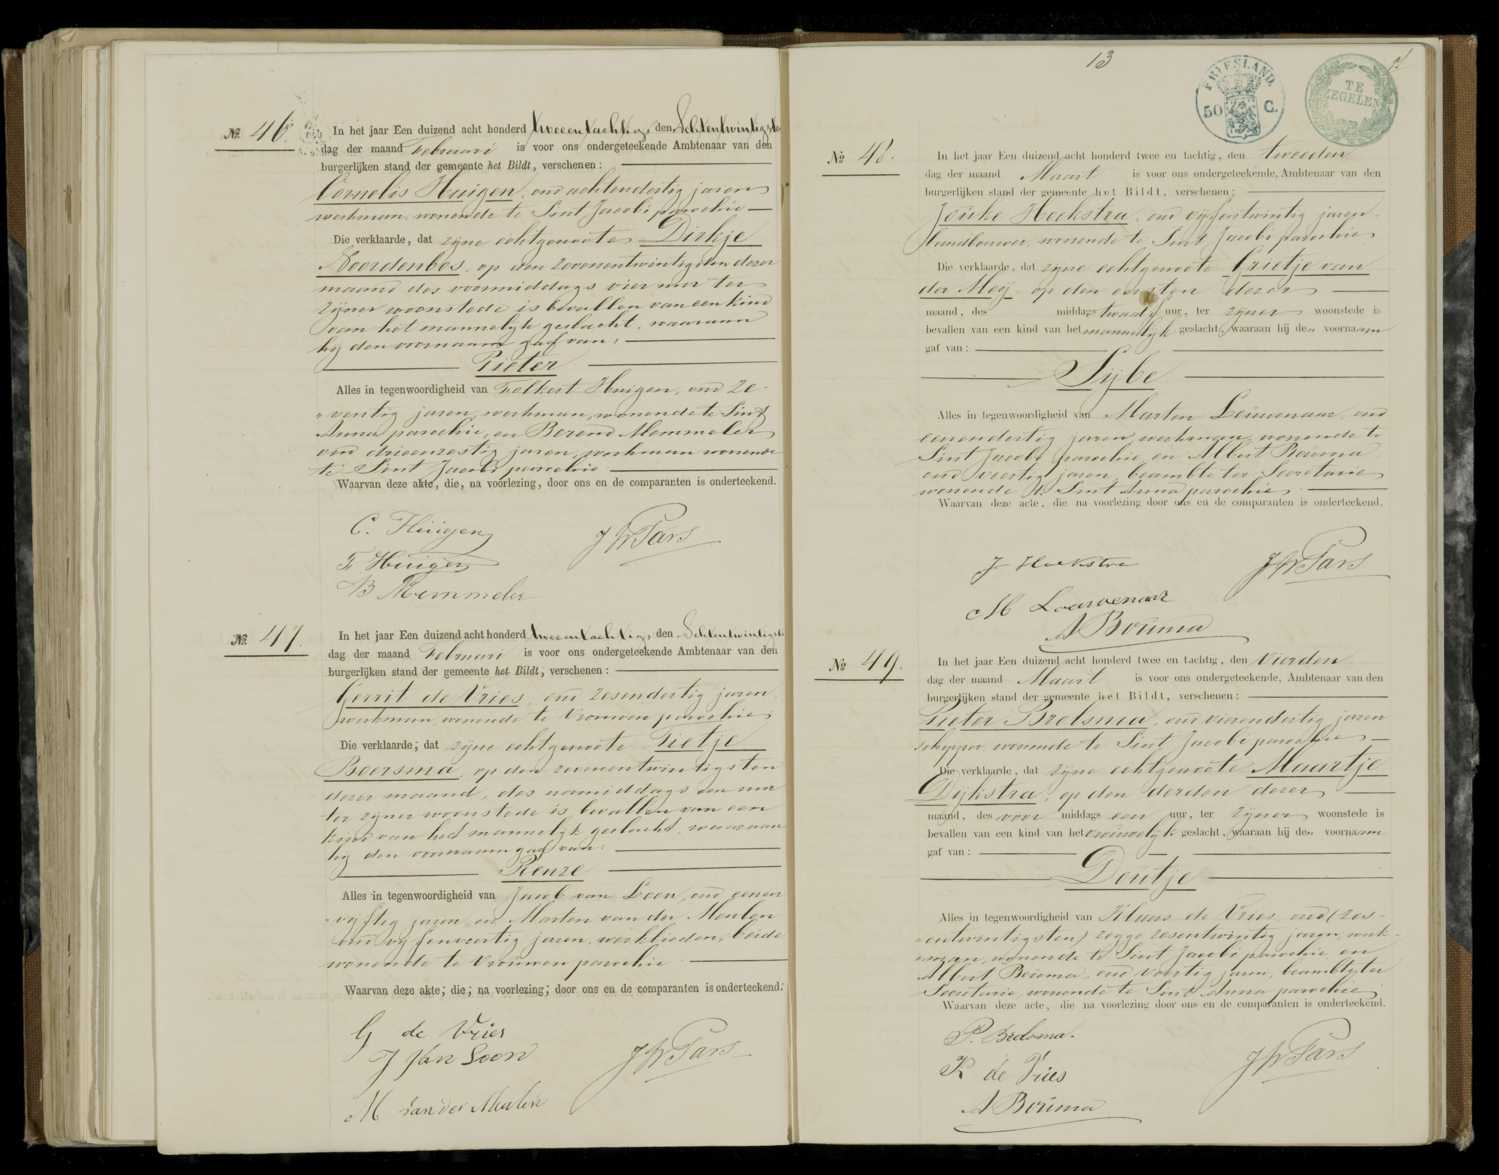 No. 46.
In het jaar Een duizend acht honderd tweeentachtig, den Achtentwintigste
dag der maand Februari is voor ons ondergeteekende Ambtenaar van den
burgerlijken stand der gemeente het Bildt, verschenen:
Cornelis Huigen, oud achtendertig jaren
werkman, wonende te Sint Jacobi parochie
Die verklaarde, dat zijne echtgenoote Dirkje
Noordenbos, op den zevenentwintigsten dezer
maand des voormiddags vier uur ter
zijner woonstede is bevallen van een kind
van het mannelijk geslacht, waaraan
hij den voornaam gaf van:
Pieter
Alles in tegenwoordigheid van Folkert Huigen, oud ze-
ventig jaren, werkman, wonende te Sint
Anna parochie, en Berend Memmeler
oud drieenzestig jaren, werkman wonende
te Sint Jacobi parochie
Waarvan deze akte, die, na voorlezing, door ons en de comparanten is onderteekend.
C. Huigen
F Huigen
B Memmeler
No. 47.
In het jaar Een duizend acht honderd tweeentachtig, den Achtentwintigste
dag der maand Februari is voor ons ondergeteekende Ambtenaar van den
burgerlijken stand der gemeente het Bildt, verschenen:
Gerrit de Vries, oud zesendertig jaren
werkman, wonende te Vrouwen parochie
Die verklaarde, dat zijne echtgenoote Pietje
Boersma, op den zevenentwintigsten
dezer maand, des namiddags een uur
ter zijner woonstede is bevallen van een
kind van het mannelijk geslacht, waaraan
hij den voornaam gaf van:
Renze
Alles in tegenwoordigheid van Jacob van Loon, oud eenen
vijftig jaren, en Marten van der Meulen
oud vijfenveertig jaren, werklieden, beide
wonende te Vrouwen parochie
Waarvan deze akte, die, na voorlezing, door ons en de comparanten is onderteekend.
G de Vries
J van Loon
M van der Meulen
13
FRIESLAND.
50 C.
TE
ZEGELEN
No. 48.
In het jaar Een duizend acht honderd twee en tachtig, den tweeden
dag der maand Maart is voor ons ondergeteekende, Ambtenaar van den
burgerlijken stand der gemeente het Bildt, verschenen:
Jouke Hoekstra, oud vijfentwintig jaren
landbouwer, wonende te Sint Jacobi parochie
Die verklaarde, dat zijne echtgenoote Grietje van
der Meij op den eersten dezer
maand, des middags twaalf uur, ter zijner woonstede is
bevallen van een kind van het mannelijk geslacht, waaraan hij den voornaam
gaf van:
Sijbe
Alles in tegenwoordigheid van Marten Leeuwenaar, oud
eenendertig jaren, werkman, wonende te
Sint Jacobi parochie, en Albert Bouma
oud veertig jaren, beambte ter Secretarie
wonende te Sint Anna parochie
Waarvan deze acte, die na voorlezing door ons en de comparanten is onderteekend.
J Hoekstra
M Leeuwenaar
A Bouma
No. 49.
In het jaar Een duizend acht honderd twee en tachtig, den vierden
dag der maand Maart is voor ons ondergeteekende, Ambtenaar van den
burgerlijken stand der gemeente het Bildt, verschenen:
Pieter Bretsma, oud vierendertig jaren
schipper wonende te Sint Jacobi parochie
Die verklaarde, dat zijne echtgenoote Maartje
Dijkstra, op den derden dezer
maand, des voor middags een uur, ter zijner woonstede is
bevallen van een kind van het vrouwelijk geslacht, waaraan hij den voornaam
gaf van:
Doutje
Alles in tegenwoordigheid van Klaas de Vries, oud (zes-
entwintigsten) zegge zesentwintig jaren, werk-
man, wonende te Sint Jacobi parochie en
Albert Bouma, oud veertig jaren, beambte ter
Secretarie, wonende te Sint Anna parochie
Waarvan deze acte, die na voorlezing door ons en de comparanten is onderteekend.
P. Bretsma.
K de Vries
A Bouma